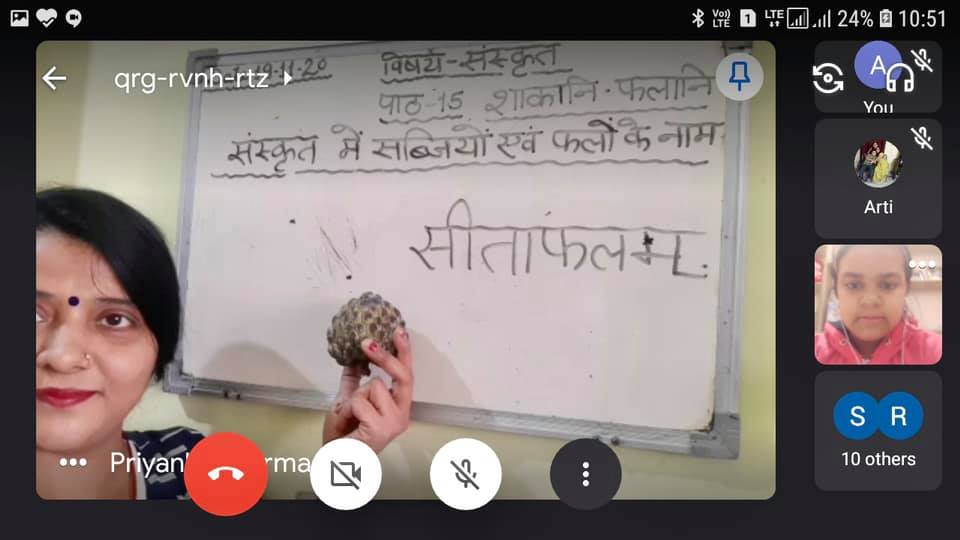 LTE
24%
10:51
qrg-rvnh-rtz
19-11-20
विषय-संस्कृत
पाठ-15 शाकानि. फलानि
संस्कृत में सब्जियों एवं फलों के नाम
सीताफलम्.
A
You
Arti
S R
10 others